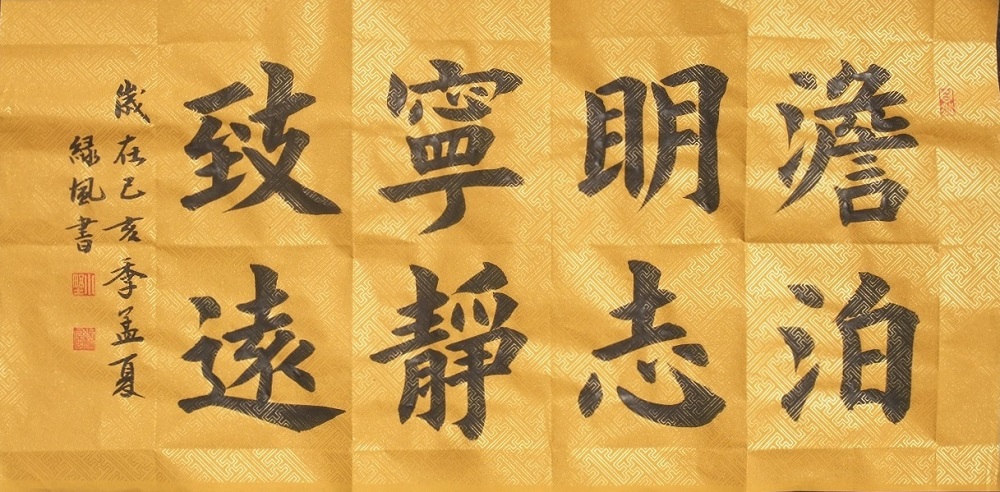 澹泊
明志
寧靜
致遠
歲在己亥季孟夏
緑風書